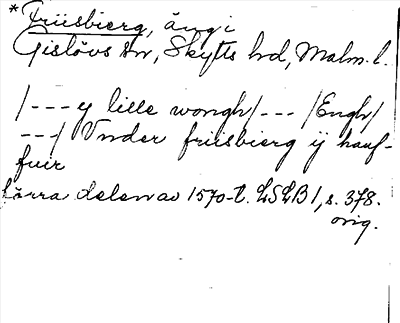 *Friisbierg, äng i
Gislövs sn, Skytts hd, Malm. l.
/---y lille wongh/--- /Engh/
---/ Vnder friisbierg ij hauf-
fuir
Lärra delen av 1570-t. LSLB 1, s. 378.
orig.